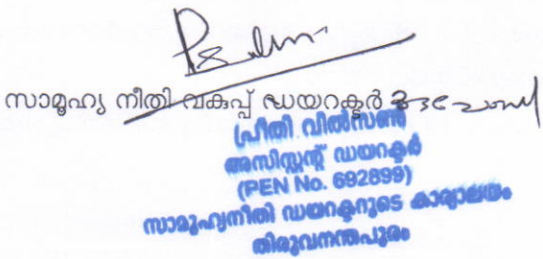 സാമൂഹ്യ നീതി വകുപ്പ് ഡയറക്ടർ
പ്രീതി വിൽസൺ
അസിസ്റ്റന്റ് ഡയറക്ടർ
(PEN No. 692899)
സാമൂഹ്യനീതി ഡയറക്ടറുടെ കാര്യാലയം
തിരുവനന്തപുരം